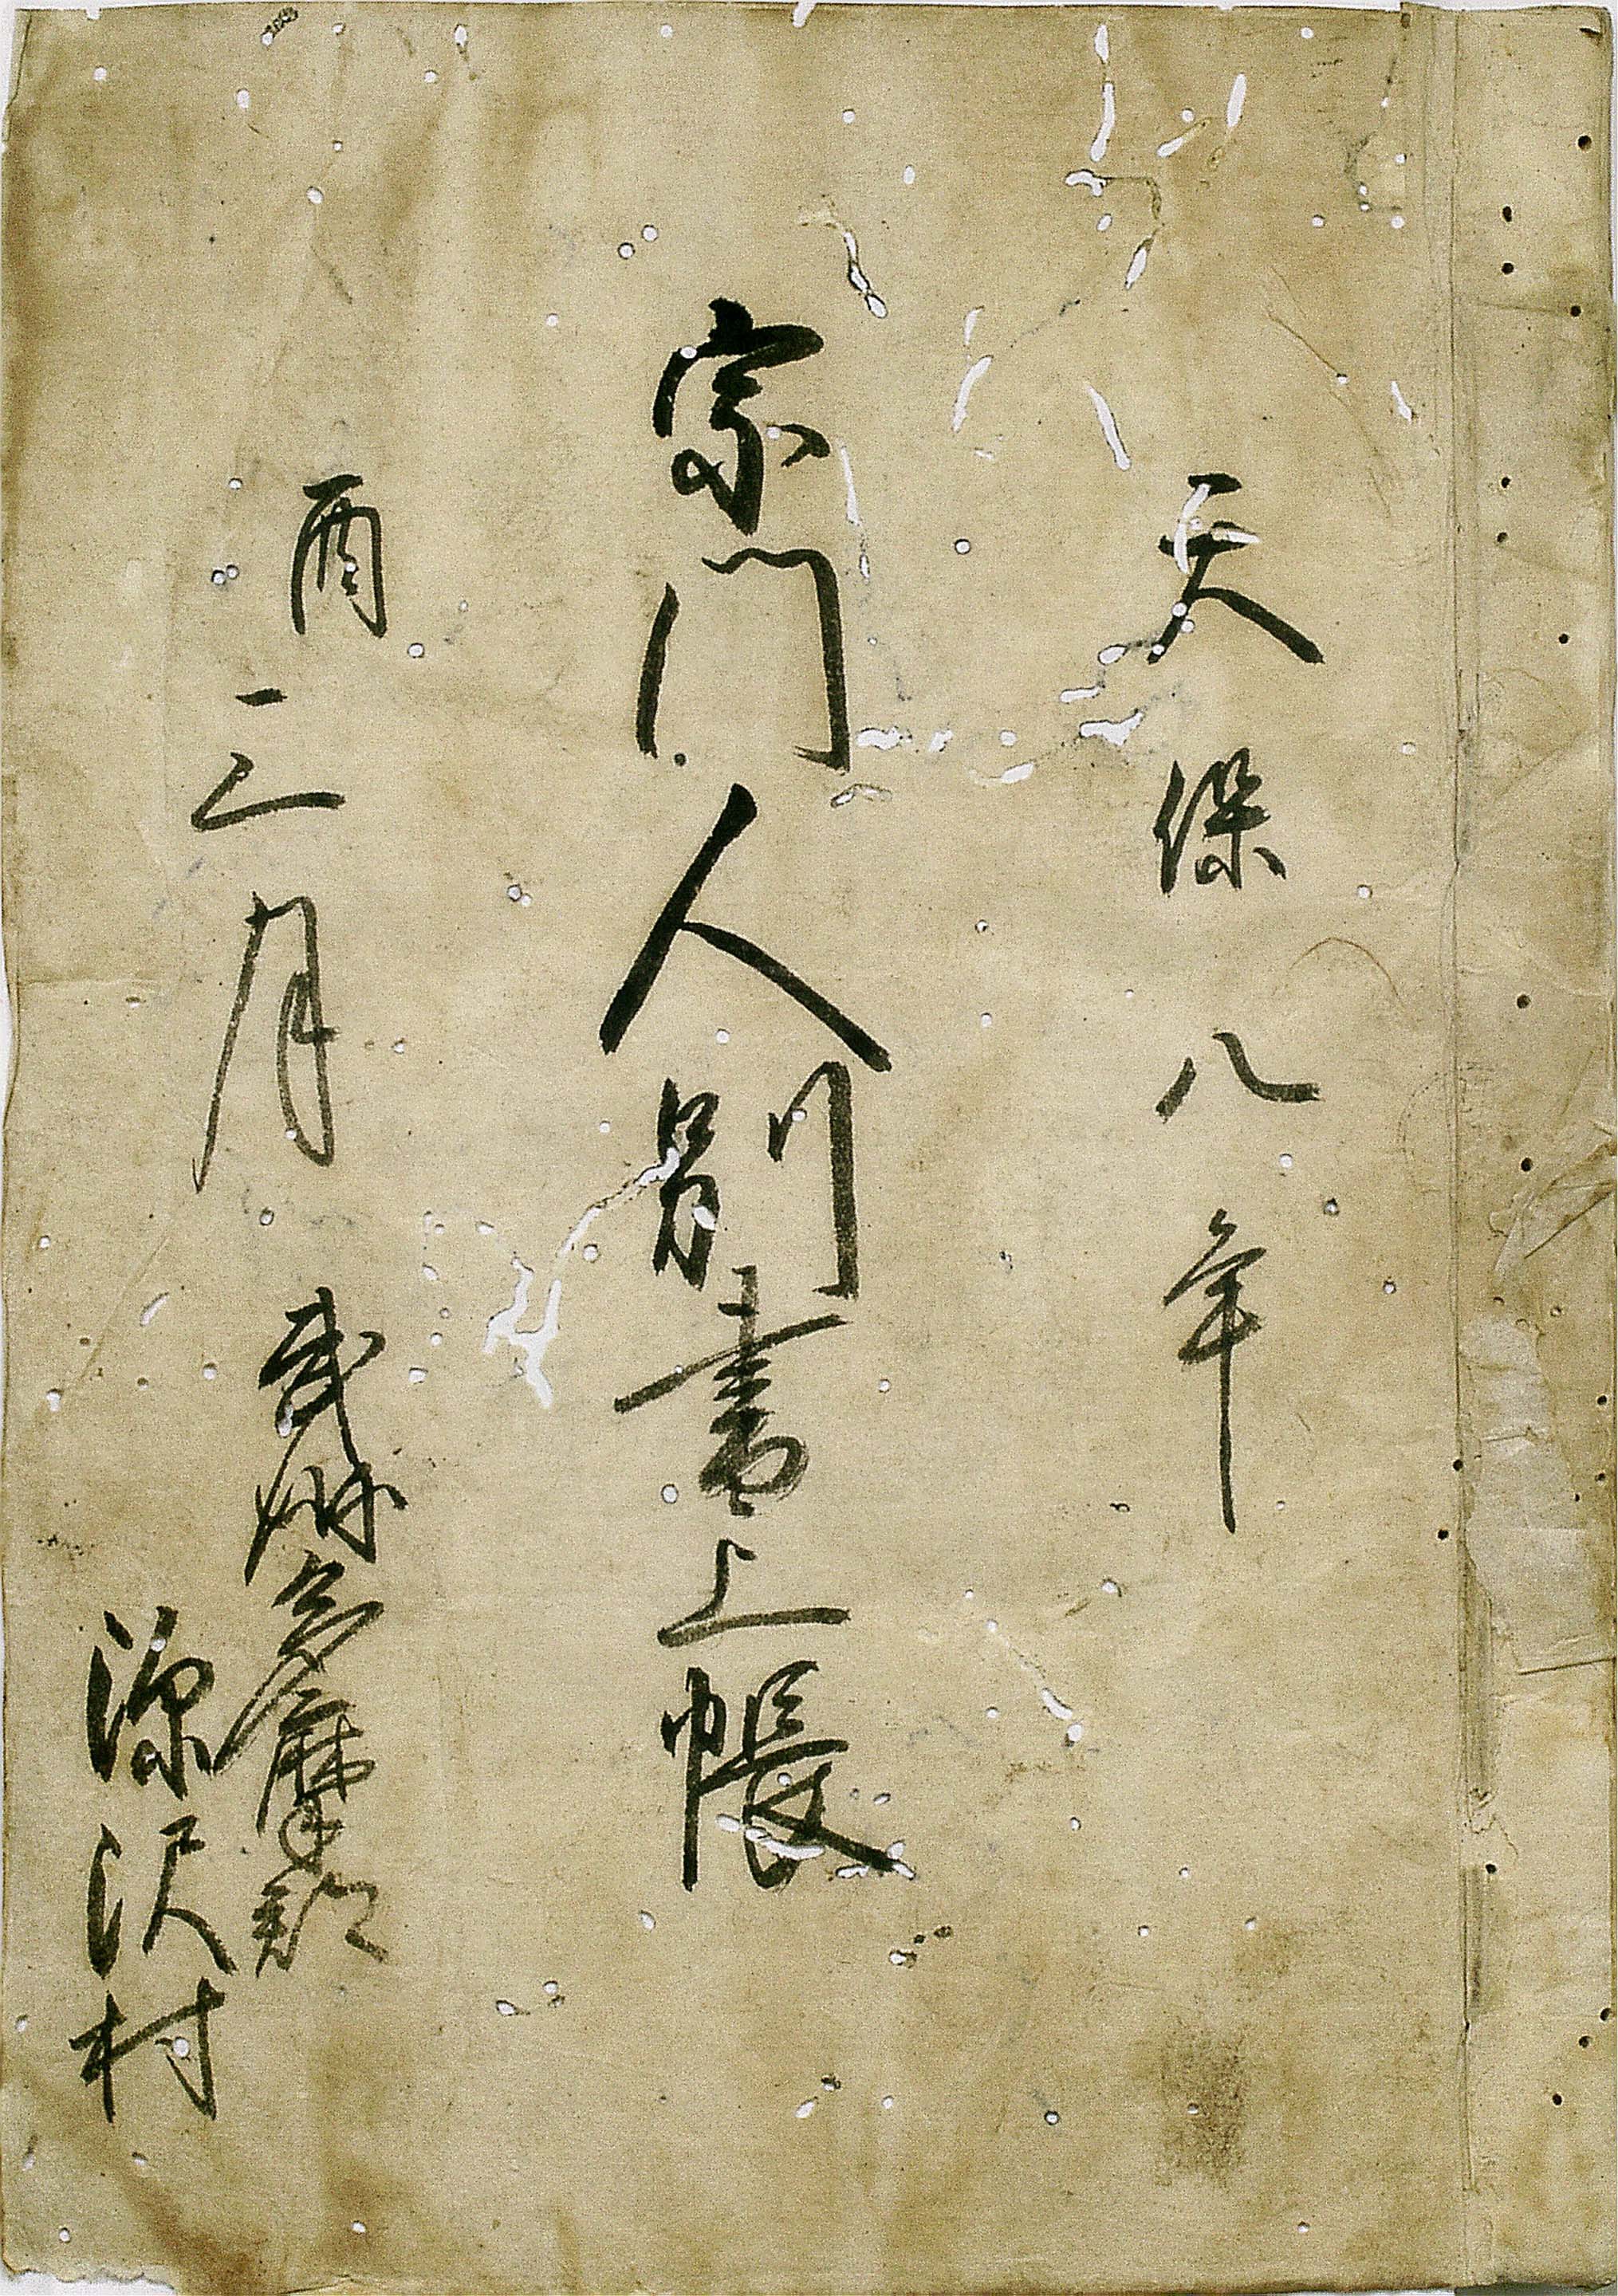 天保八年
宗門人別書上帳
酉三月
武州多摩郡
深沢村